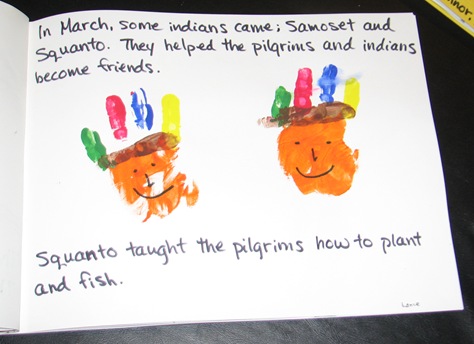 In March, some indians came; Samoset and
Squanto. They helped the pilgrims and indians
become friends.
Squanto taught the pilgrims how to plant
and fish.